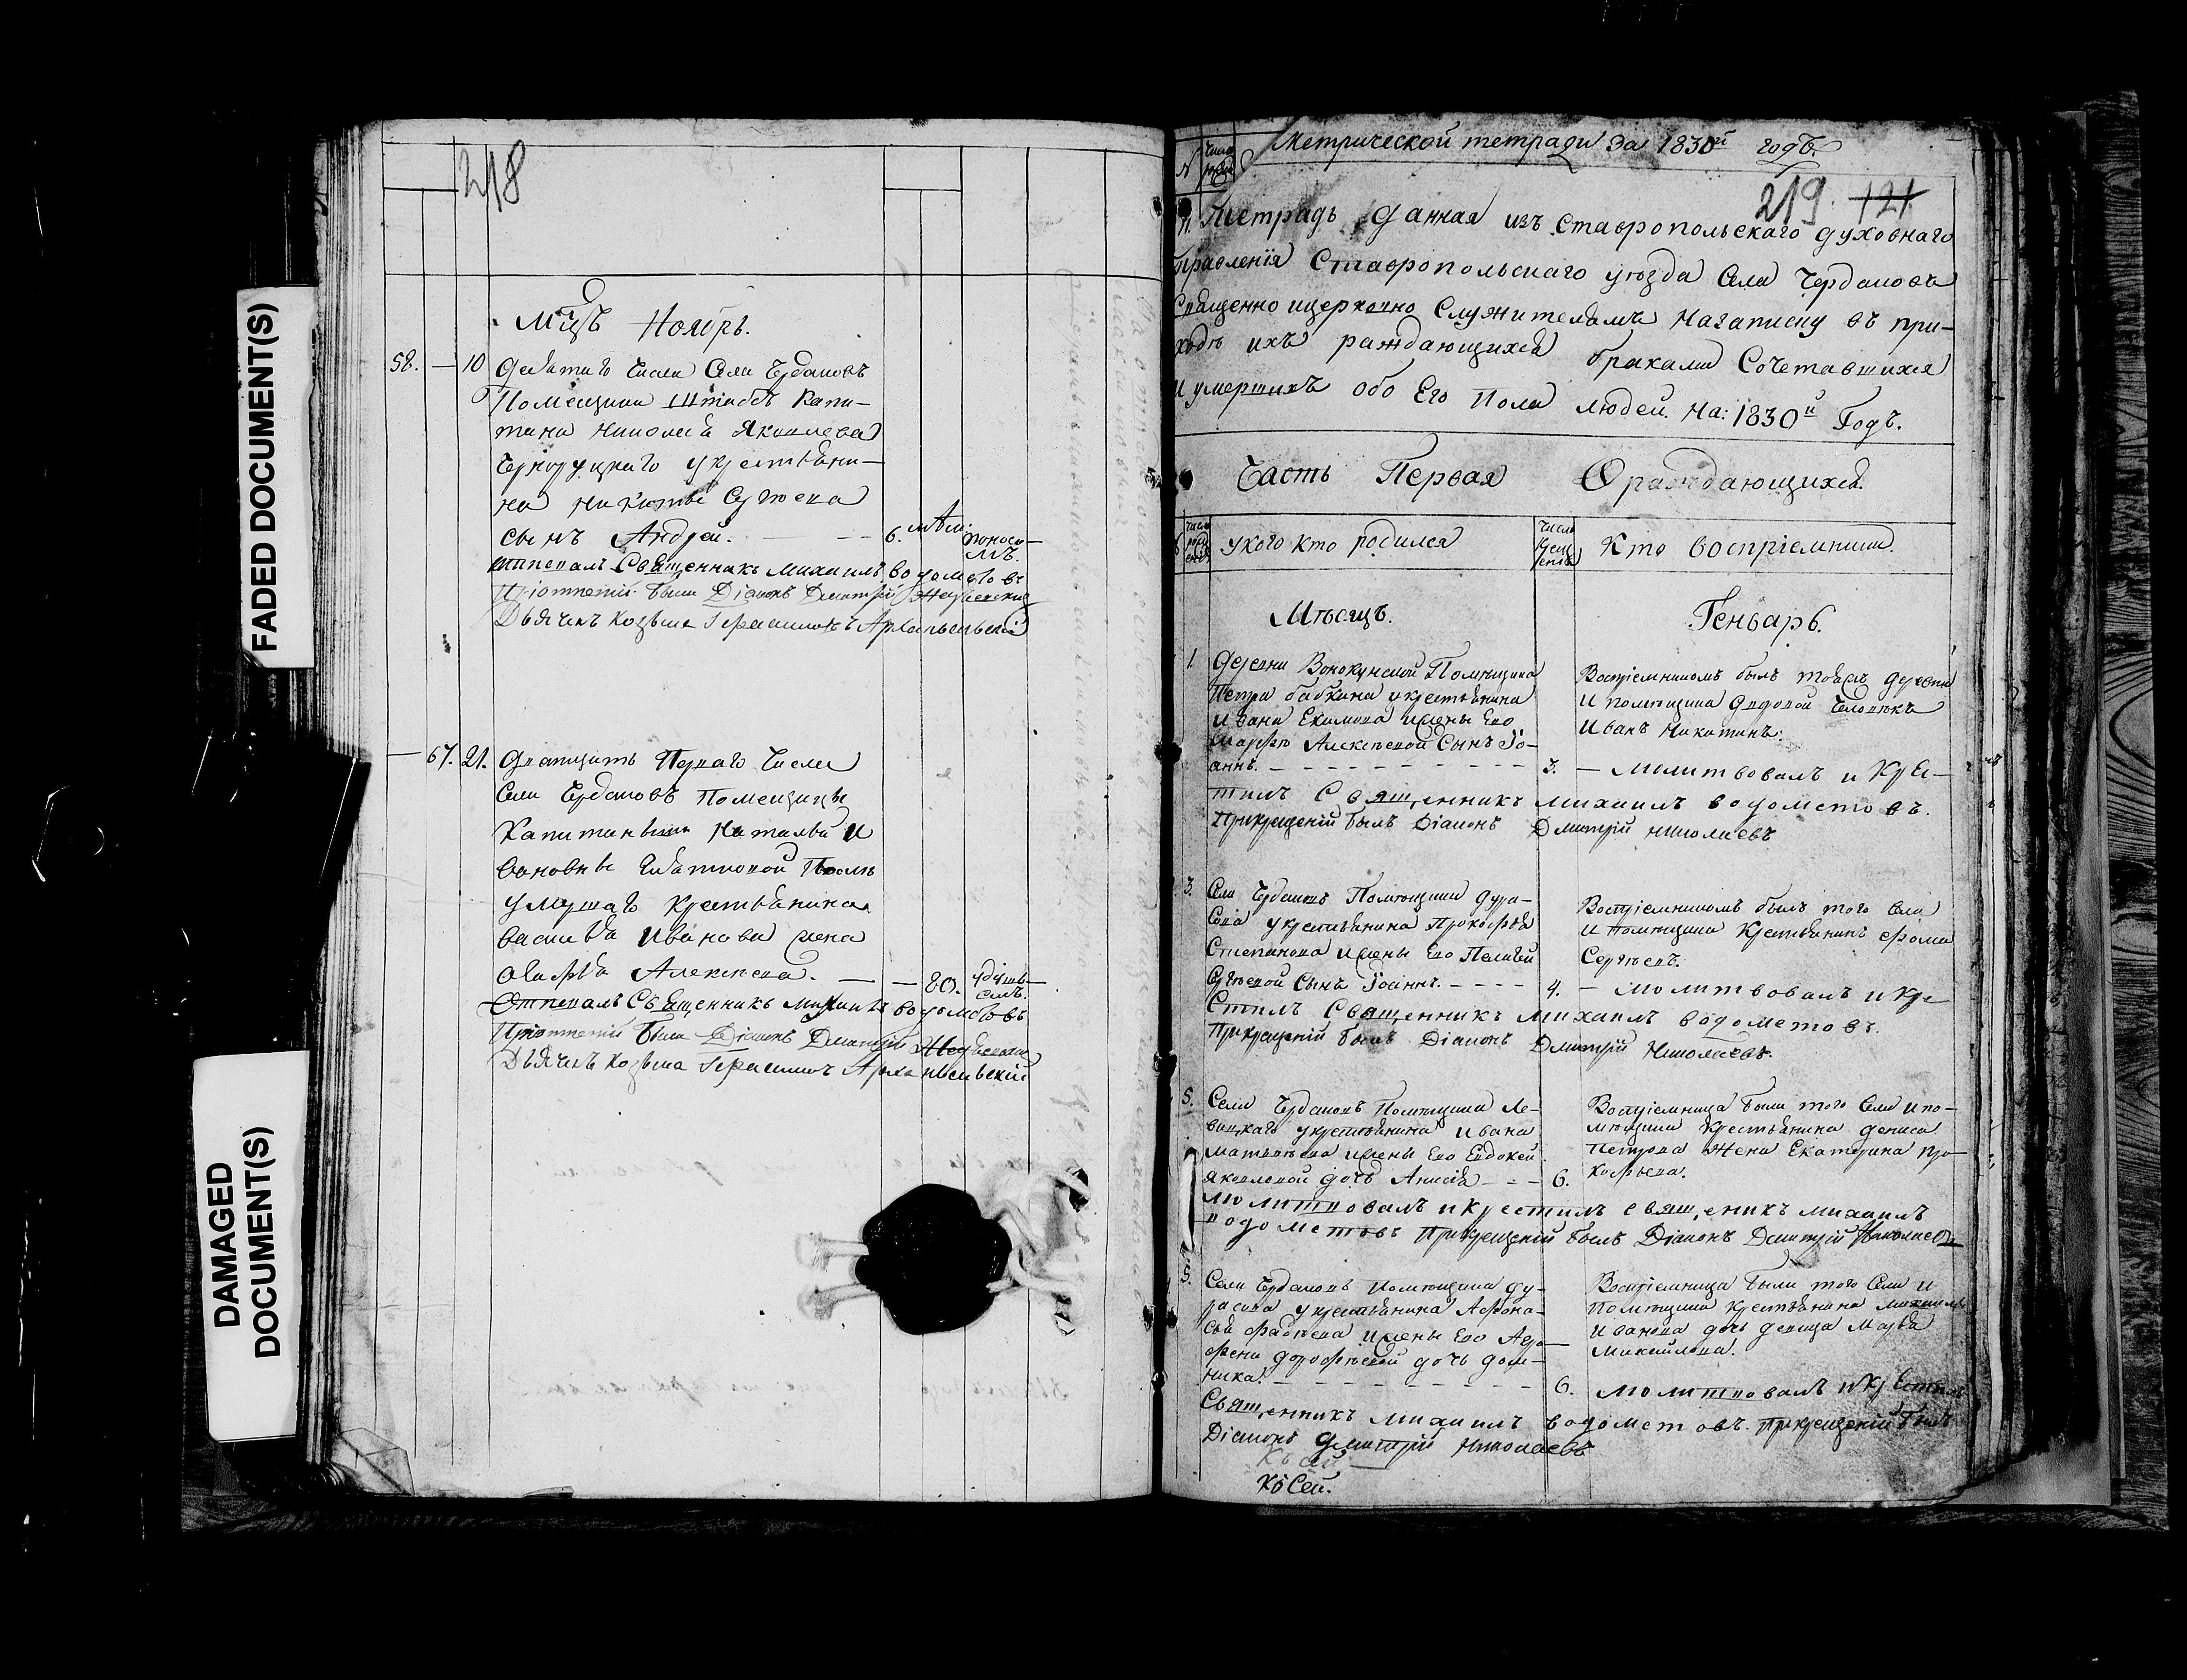 FADED DOCUMENT(S)
DAMAGED
DOCUMENT(S)
218
Мцъ Ноябрь.
58. — 10 Десятаго Числа Села Чердаковъ
Помещика Штабсъ Капи—
тана Николая Яковлева
у крестьяни—
на Никиты Сергѣева
сынъ Андрей. — — 6. мѣсе. поносо—
мъ.
отпевалъ Священникъ Михаилъ Водометовъ
При отпетіи были Діаконъ Дмитрій
Дьячекъ Козьма Герасимовъ Архангельскій
— 67. 21. Дватцать Перваго Числа
Села Чердаковъ Помещицы
Капитанши Натальи И
вановны Посль
умершаго Крестьянина
Василья Иванова жена
Марфа Алексѣева. — — 80. удушь—
емъ.
Отпевалъ Священникъ Михаилъ Водометовъ
При отпетіи были Діаконъ Дмитрій
Дьячекъ Козьма Герасимовъ Архангельскій
Метрической тетради За 1830й годъ.
№ Число рожд
219. 121
Тетрадь Данная изъ Ставропольскаго Духовнаго
Правленія Ставропольскаго уѣзда Села Чердаковъ
Священно и церковно Служителямъ На записку въ при—
ходѣ ихъ раждающихся браками Сочетавшихся
и умершихъ обо Его Пола людей. На: 1830й Годъ.
Часть Первая О раждающихся.
Число рождения
У кого кто родился
Число крещения
Кто воспріемники.
Мѣсяцъ. Геньварь.
1. Деревни Вонокунской Помещика
Петра Бабкина у крестьянина
Ивана Екимова и жены Его
Марфы Алексѣевой Сынъ Іо—
аннъ. — — — 3.
Воспріемникомъ былъ тоя деревни
И помещика дворовой Человекъ
Иванъ Никитинъ.
— Молитвовалъ и Кре—
стилъ Священникъ Михаилъ Водометовъ.
При крещеніи былъ Діаконъ Дмитрій Николаевъ
3. Села Чердаковъ Помещика Дура—
сова у крестьянина Прокофья
Степанова и жены Его Пелагеи
Сергѣевой Сынъ Іоаннъ. — — — 4.
Воспріемникомъ былъ того Села
И помещика Крестьянинъ Фома
Сергѣевъ.
— Молитвовалъ и Кре
Стилъ Священникъ Михаилъ Водометовъ.
При крещеніи былъ Діаконъ Дмитрій Николаевъ.
5. Села Чердаковъ Помещика Ле—
вицкаго у крестьянина Ивана
Матвѣева и жены Его Евдокеи
Яковлевой дочь Анисія — — — 6.
Воспріемница была того Села и по—
мещика Крестьянина Дениса
Петрова Жена Екатерина Про—
кофьева.
Молитвовалъ и крестилъ Священикъ Михаилъ
Водометовъ При крещеніи былъ Діаконъ Дмитрій Николаевъ
5. Села Чердаковъ помещика Ду—
расова у крестьянина Афона—
сья Фадѣева и жены Его Агро—
фены Дорофѣевой дочь Дом—
ника. — — — 6.
Воспріемница была того Села И
Помещика Крестьянина Михаила
Иванова дочь девица Марья
Михайлова.
Молитвовалъ и Крестилъ
Священникъ Михаилъ Водометовъ. При крещеніи былъ
Діаконъ Дмитрій Николаевъ
Къ Сей.